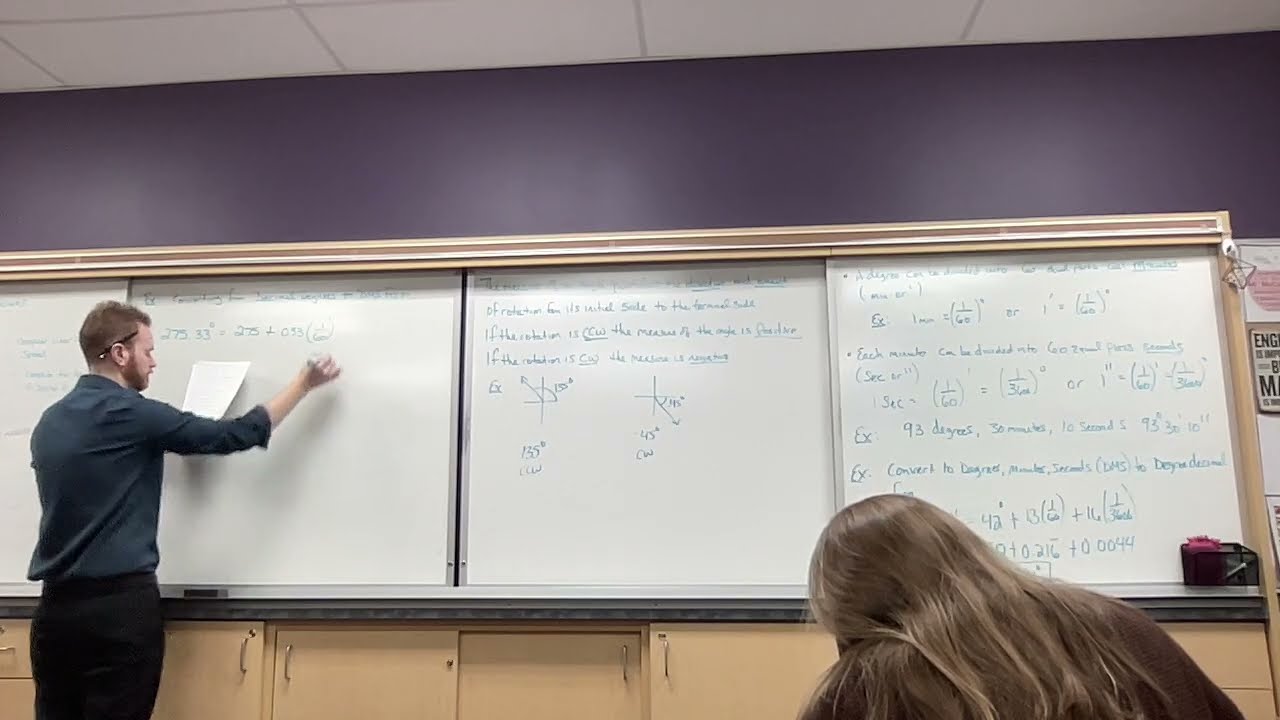 Ex Converting from Decimal Degrees to DMS Form
275.33° = 275 + 0.33(1/60)'
The measure of direction and amount
of rotation from its initial side to the terminal side
If the rotation is CCW the measure of the angle is positive
If the rotation is CW the measure is negative
Ex 135° 45°
135° -45°
CCW CW
• A degree can be divided into 60 equal parts called minutes
(min or ')
Ex: 1 min = (1/60)° or 1' = (1/60)°
• Each minute can be divided into 60 equal parts seconds
(Sec or '')
1 Sec = (1/60)' = (1/3600)° or 1'' = (1/60)' = (1/3600)°
Ex: 93 degrees, 30 minutes, 10 seconds 93° 30' 10''
Ex. Convert to Degrees, Minutes, Seconds (DMS) to Degree decimal
Form
= 42° + 13(1/60) + 16(1/3600)
+ 0.216 + 0.0044
ENG
IS IMP
B
M
IS IM